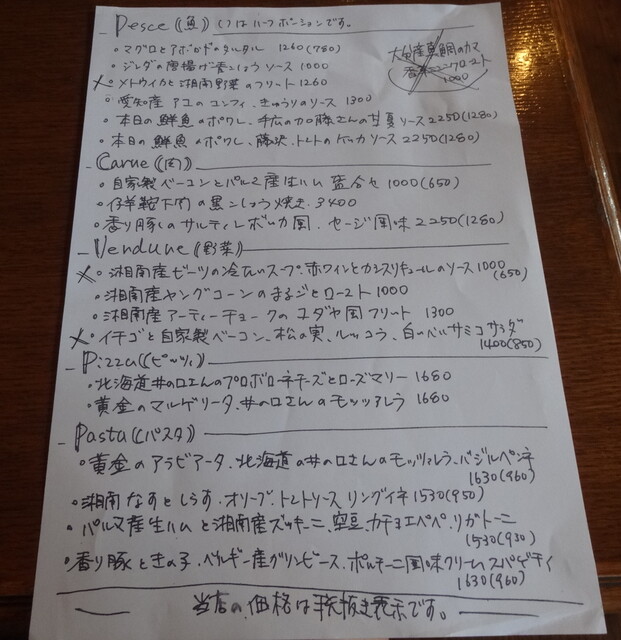 Pesce (魚) ( )はハーフポーションです。
・マグロとアボカドのタルタル 1260(780)
大分産真鯛のカマ
1000
・ジンダの唐揚げ香こしょうソース 1000
×・メトウイカと湘南野菜のフリート 1260
・愛知産 アユのコンフィ、きゅうりのソース 1300
・本日の鮮魚のポワレ、手広の加藤さんの甘夏ソース 2250(1280)
・本日の鮮魚のポワレ、藤沢、トマトのケッカソース 2250(1280)
Carne (肉)
・自家製ベーコンとパルマ産生ハム盛合せ 1000(650)
・仔羊鞍下肉の黒こしょう焼き 3400
・香り豚しのサルティレボッカ風 セージ風味 2250(1280)
Verdure (野菜)
×・湘南産ビーツの冷たいスープ、赤ワインとカシスリキュールのソース 1000
(650)
・湘南産ヤングコーンのまるごとロースト 1000
・湘南産アーティーチョークのユダヤ風フリート 1300
×・イチゴと自家製ベーコン、松の実、ルッコラ、白いバルサミコサラダ
1400(850)
Pizza (ピッツァ)
・北海道井ノ口さんのプロボローネチーズとローズマリー 1680
・黄金のマルゲリータ、井ノ口さんのモッツァレラ 1680
Pasta (パスタ)
・黄金のアラビアータ、北海道の井の口さんのモッツァレラ、バジルペンネ
1630(960)
・湘南なすとしらす、オリーブ、トマトソース リングイネ 1530(950)
・パルマ産生ハムと湘南産ズッキーニ、空豆、カチョエペペ、リガトーニ
1530(930)
・香り豚ときの子、ベルギー産グリンピース、ポルチーニ風味クリームスパゲティ
1630(960)
当店の価格は税抜き表示です。